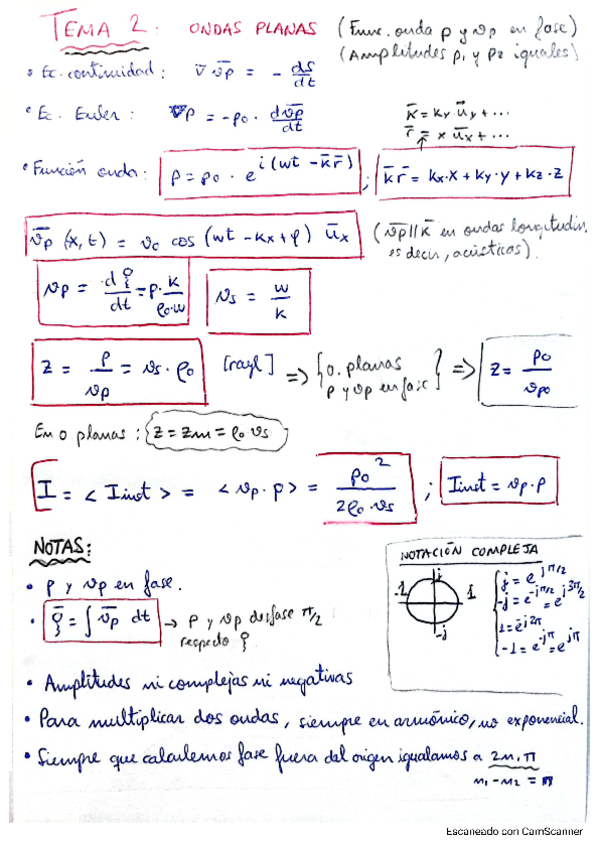 TEMA 2: ONDAS PLANAS (Func. onda p y vp en fase)
(Amplitudes p1 y p2 iguales)
• Ec. continuidad: ∇̄ v̄p = - ds/dt
• Ec. Euler: ∇p = -ρo · dv̄p/dt
K̄ = Kx ūx + ...
r̄ = x ūx + ...
• Función onda: p = po · e^{i(wt - k̄r̄)} ; k̄r̄ = kx·x + ky·y + kz·z
v̄p (x,t) = vo cos (wt - kx + φ) ūx (v̄p ∥ k̄ en ondas longitudin, es decir, acústicas).
vp = dξ/dt = p · k/(ρo·w) vs = w/k
Z = p/vp = vs · ρo [rayl] => {o. planas p y vp en fase} => Z = po/vpo
En o planas: Z = Zm = ρo vs
I = < Iinst > = < vp · p > = po²/(2ρo · vs) ; Iinst = vp · p
NOTAS:
• p y vp en fase.
• ξ̄ = ∫ v̄p dt → p y vp desfase π/2 respecto ξ
NOTACIÓN COMPLEJA
j
-1 1
-j
j = e^{jπ/2}
-j = e^{-jπ/2} = e^{j3π/2}
1 = e^{j2π}
-1 = e^{-jπ} = e^{jπ}
• Amplitudes ni complejas ni negativas
• Para multiplicar dos ondas, siempre en armónico, no exponencial.
• Siempre que calculemos fase fuera del origen igualamos a 2m, π
m1 - m2 = m
Escaneado con CamScanner